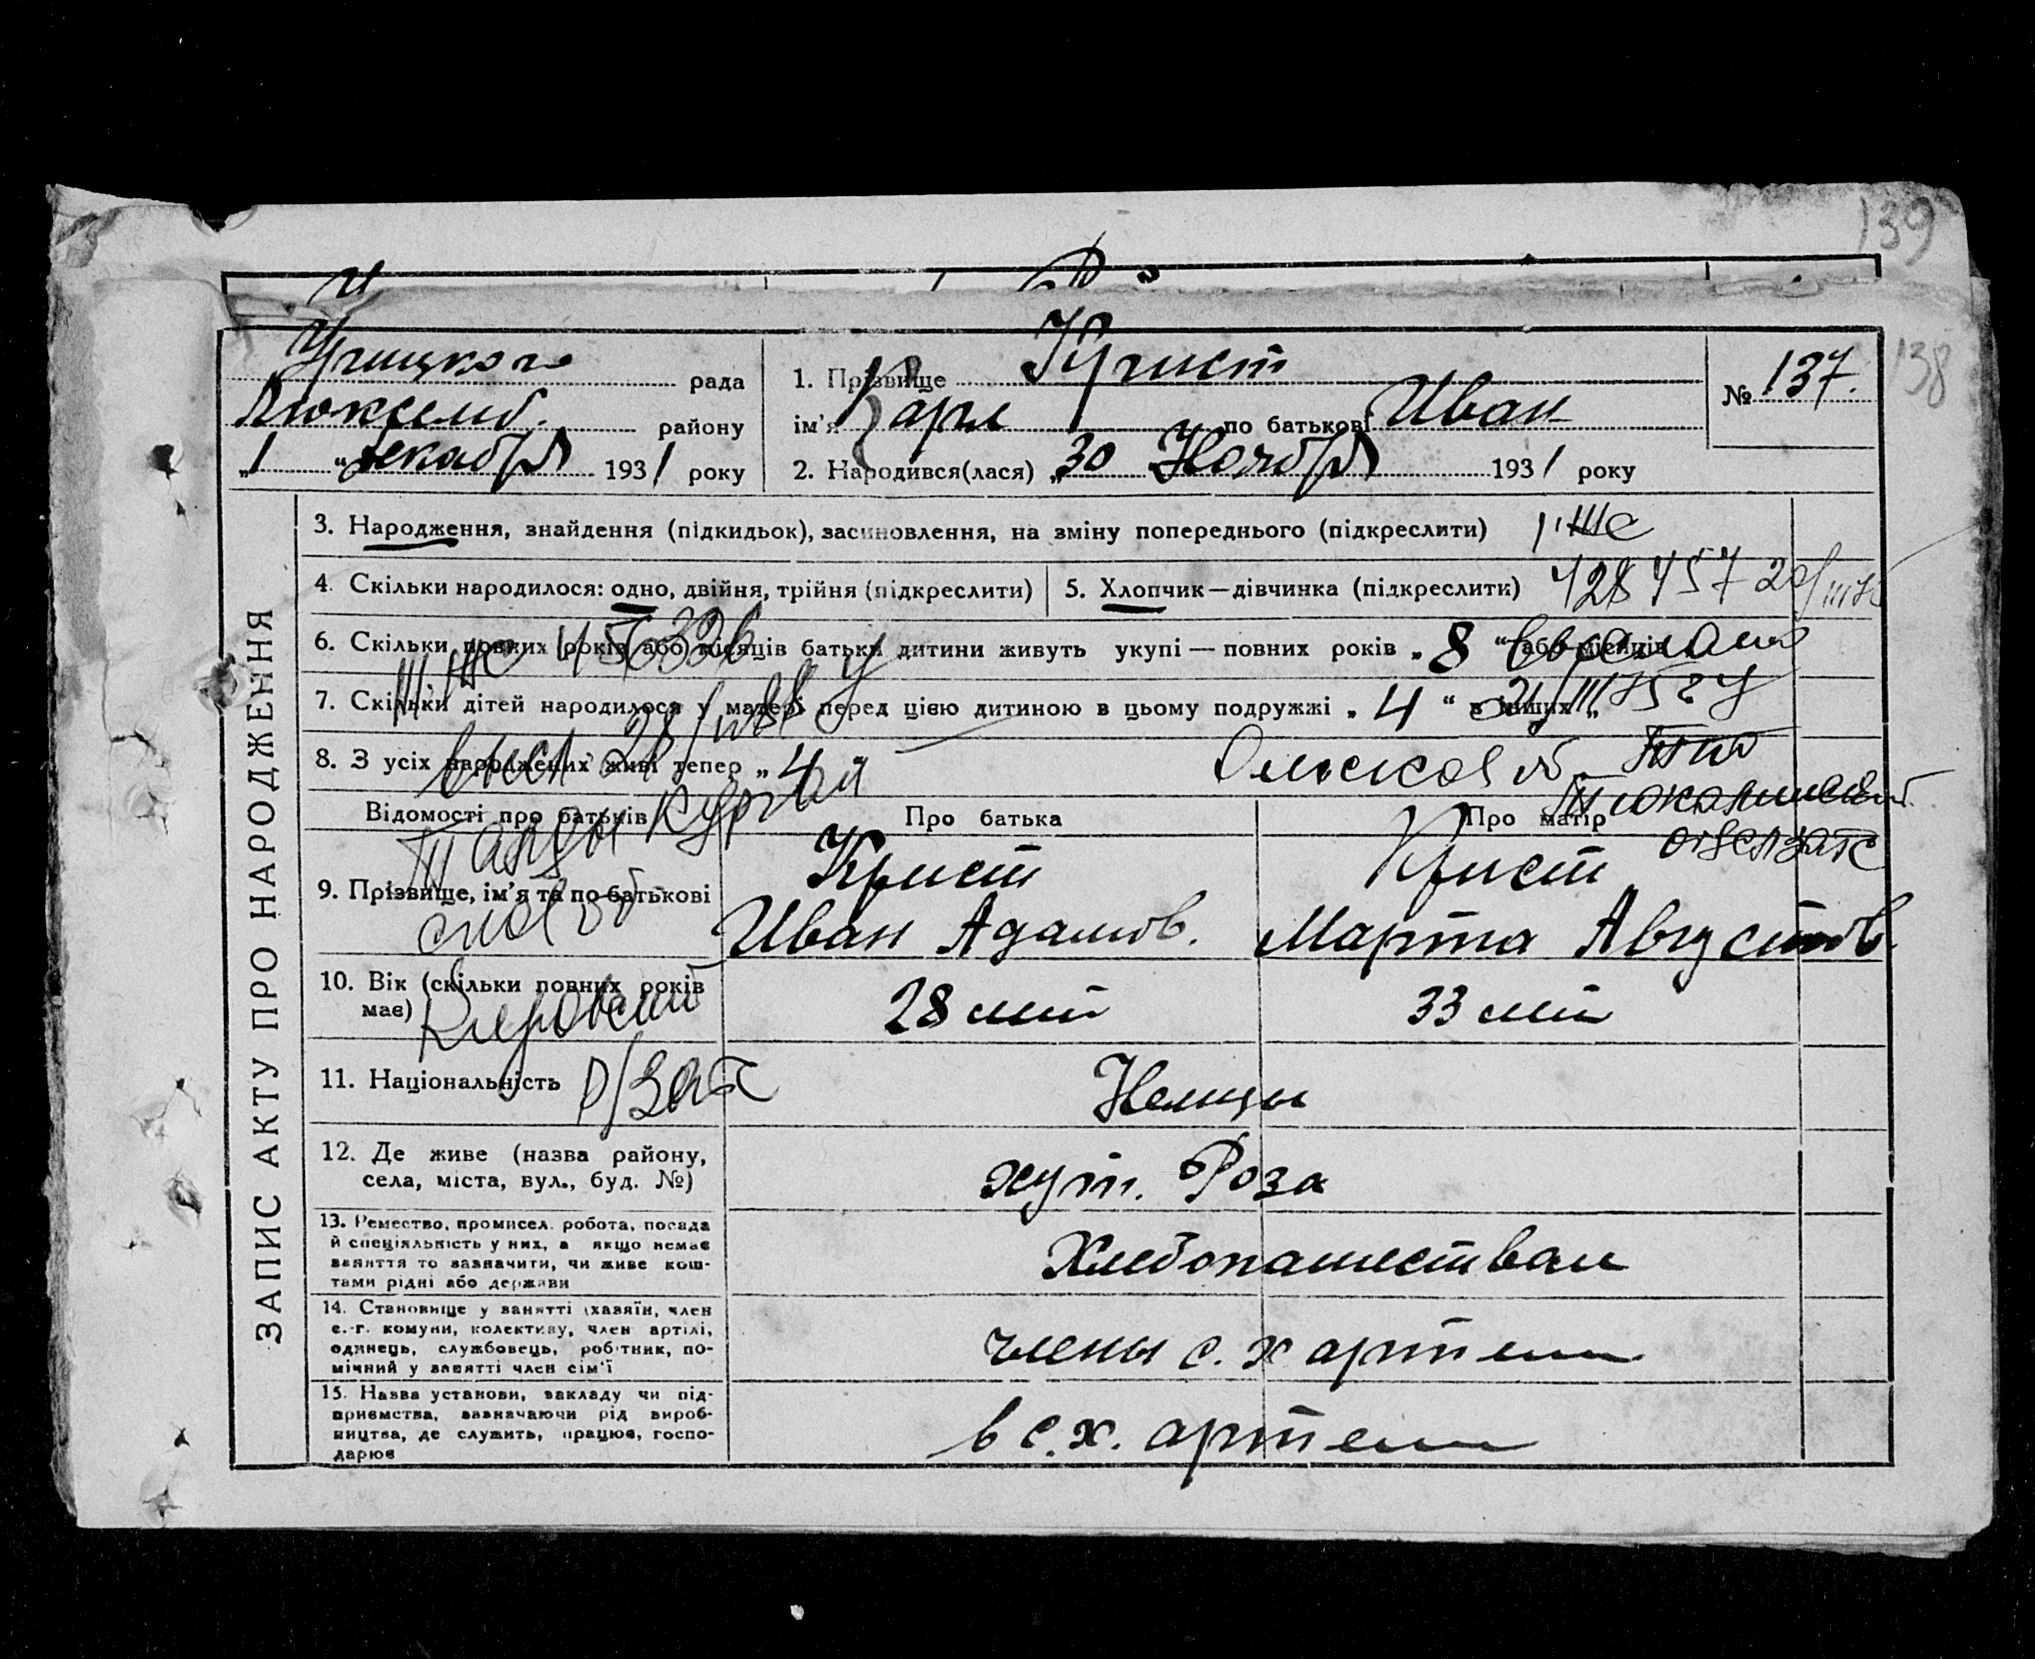 139
Урицкого рада
Люксемб. району
„1“ декабря 1931 року
1. Прізвище Крист
ім'я Карл по батькові Иван
2. Народився(лася) „30 Ноября 1931 року
№ 137.
138
ЗАПИС АКТУ ПРО НАРОДЖЕННЯ
3. Народження, знайдення (підкидьок), засиновлення, на зміну попереднього (підкреслити)
4. Скільки народилося: одно, двійня, трійня (підкреслити)
5. Хлопчик—дівчинка (підкреслити)
6. Скільки повних років або місяців батьки дитини живуть укупі — повних років „8“ або місяців
7. Скільки дітей народилося у матері перед цією дитиною в цьому подружжі „4“ в інших „
8. З усіх народжених живі тепер „4“
Омской об.
Тюкалинский
Талды Курган
Кировский
р/загс
Відомості про батьків Про батька Про матір
9. Прізвище, ім'я та по батькові
Крист Крист
Иван Адамов. Марта Августов.
10. Вік (скільки повних років
має)
28 лет 33 лет
11. Національність Немцы
12. Де живе (назва району,
села, міста, вул., буд. №)
хут. Роза
13. Ремество, промисел. робота, посада
й спеціяльність у них, а якщо немає
заняття то зазначити, чи живе кош-
тами рідні або держави
Хлебопашеством
14. Становище у занятті (хазяїн, член
с.-г. комуни, колективу, член артілі,
одинець, службовець, робітник, по-
мічний у занятті член сім'ї
члены с. х артели
15. Назва установи, закладу чи під-
приємства, зазначаючи рід вироб-
ництва, де служить, працює, госпо-
дарює
в с. х. артели